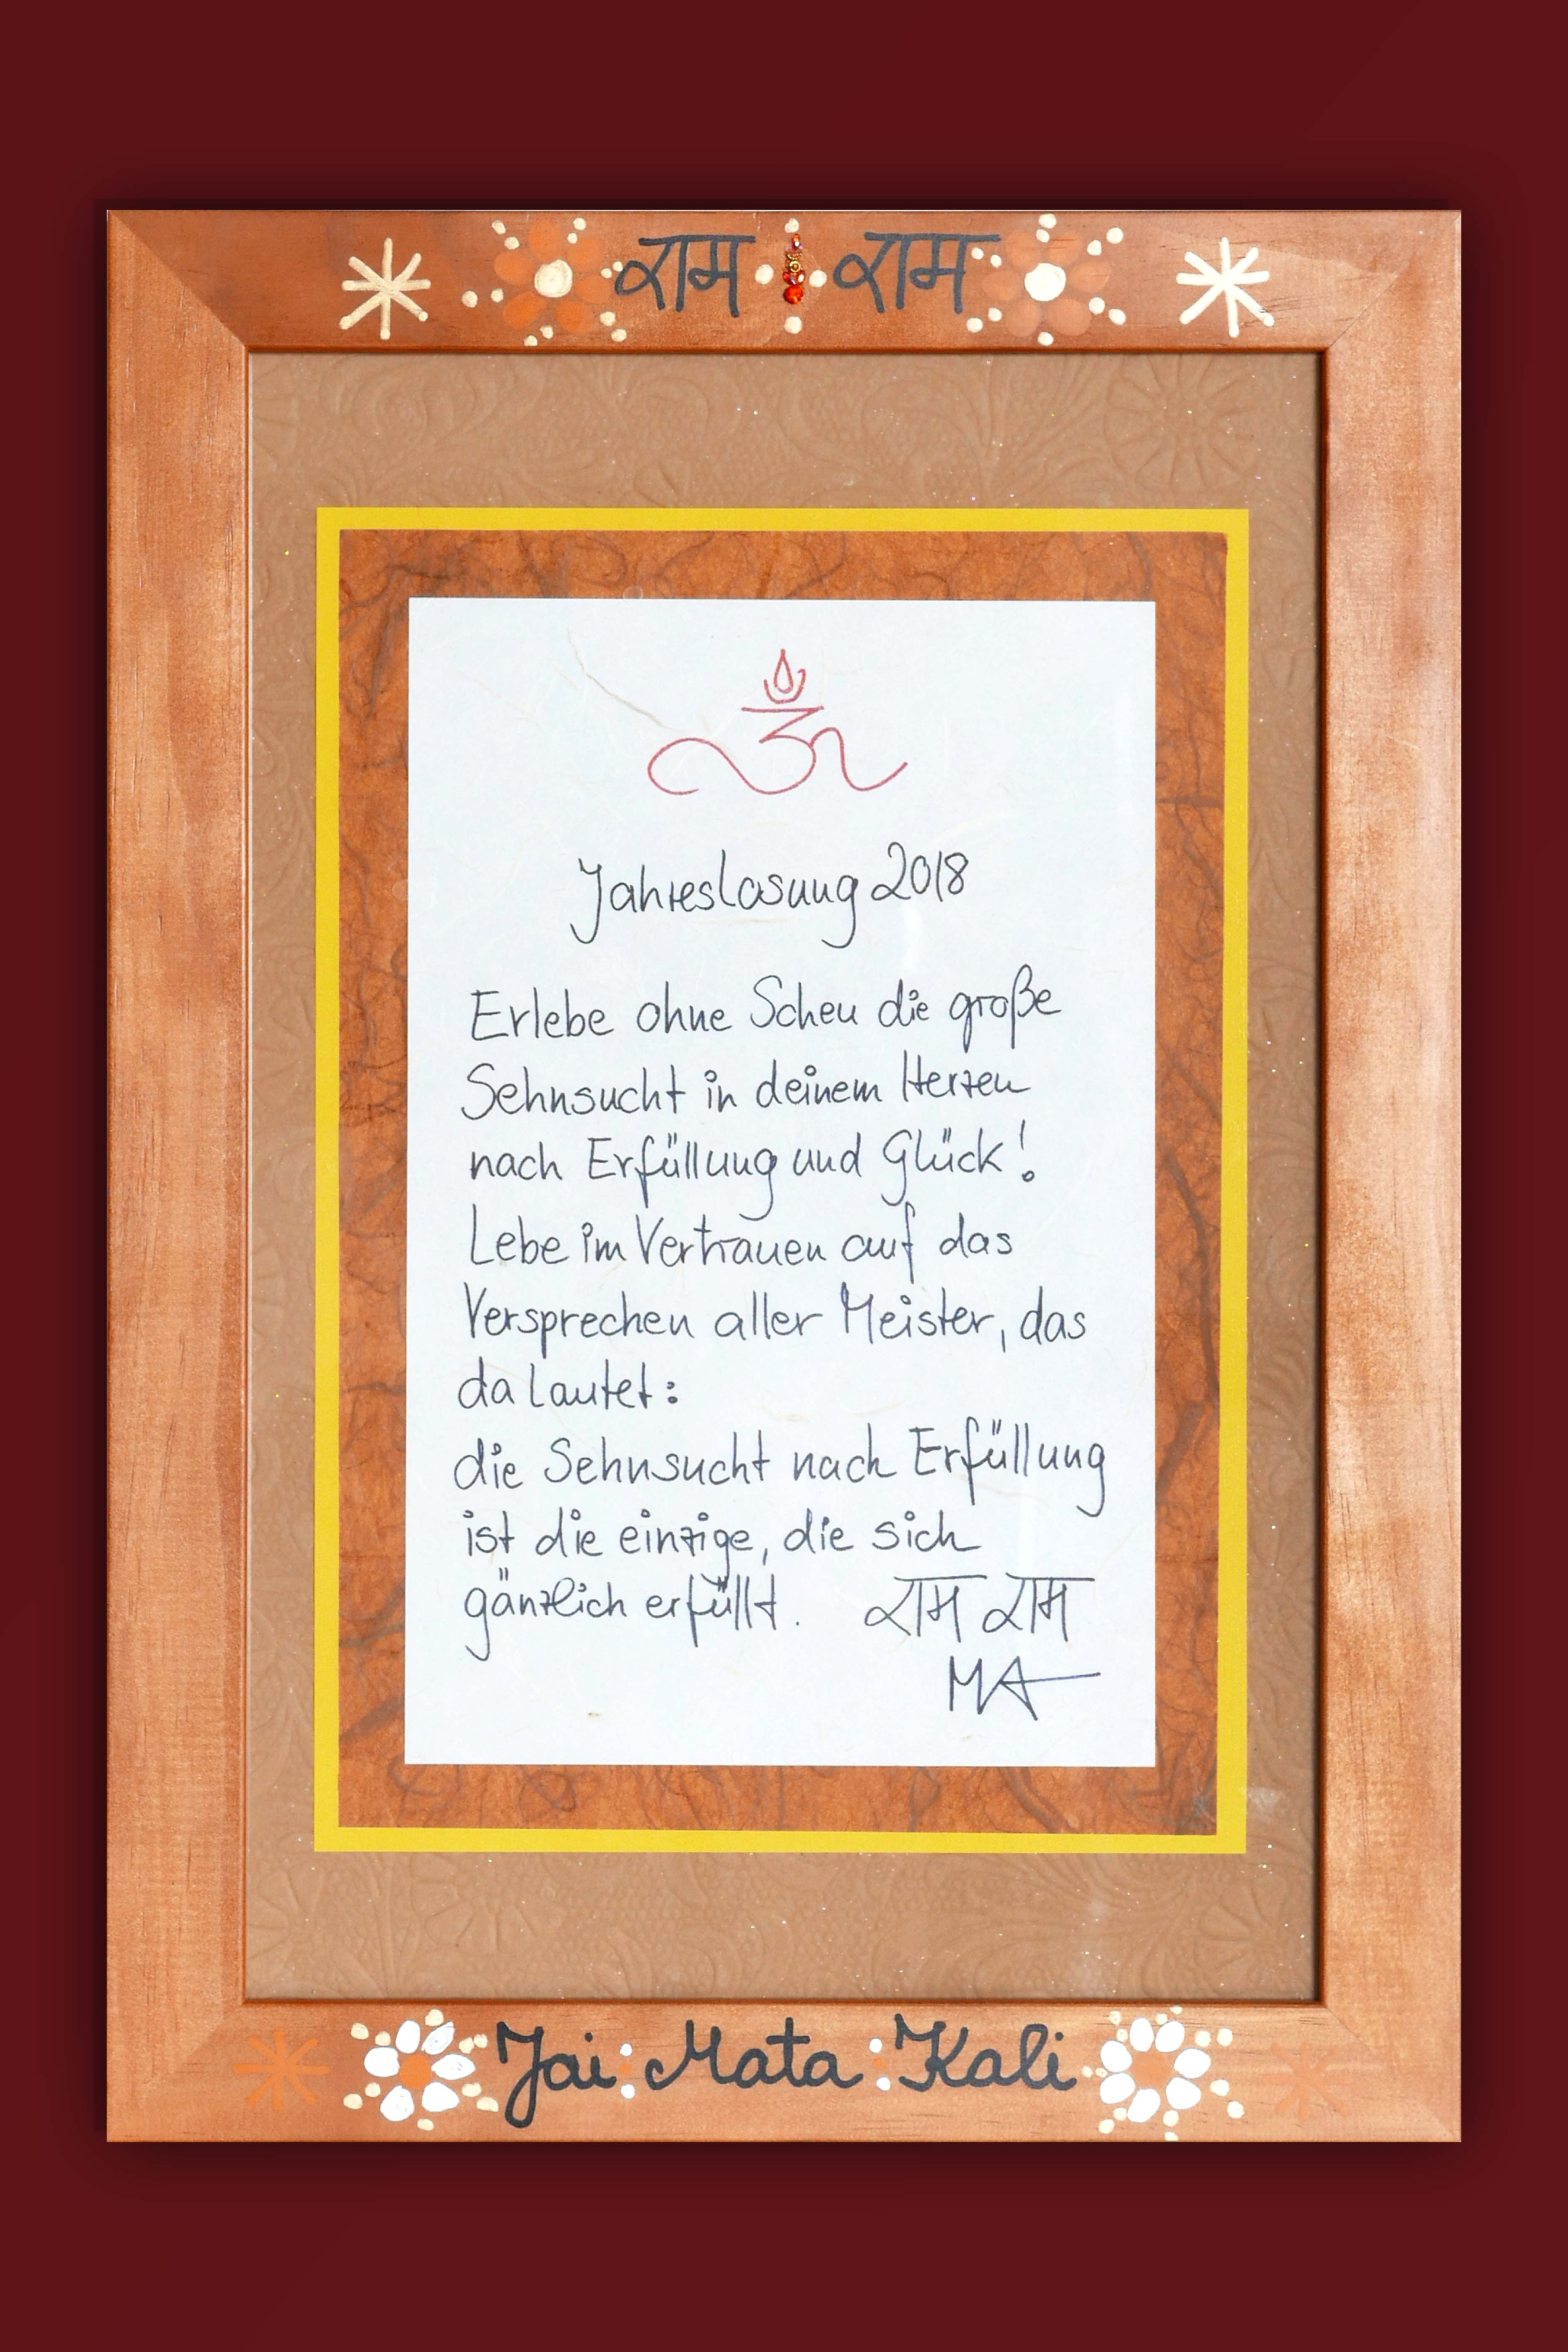 राम राम
ॐ
Jahreslosung 2018
Erlebe ohne Scheu die große
Sehnsucht in deinem Herzen
nach Erfüllung und Glück!
Lebe im Vertrauen auf das
Versprechen aller Meister, das
da lautet:
die Sehnsucht nach Erfüllung
ist die einzige, die sich
gänzlich erfüllt. राम राम
MA
Jai Mata Kali